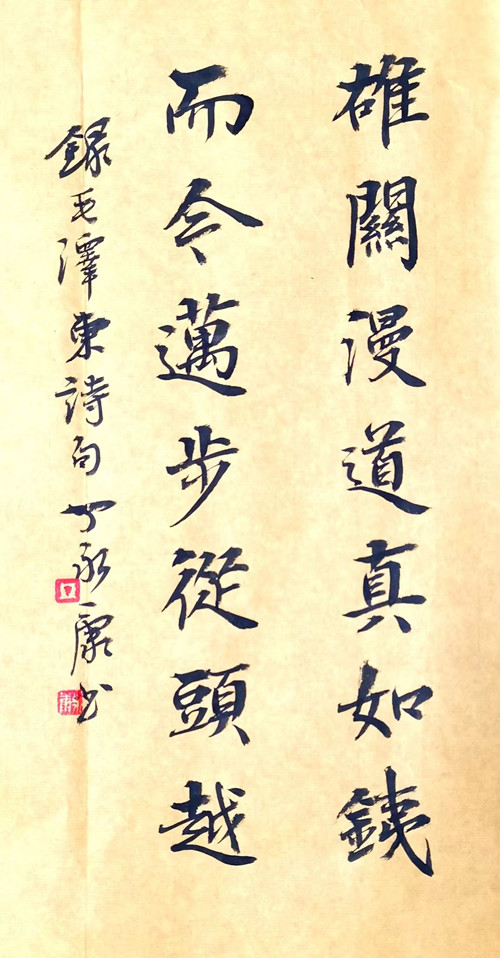 雄關漫道真如銕
而今邁步從頭越
録毛澤東詩句丁永康书